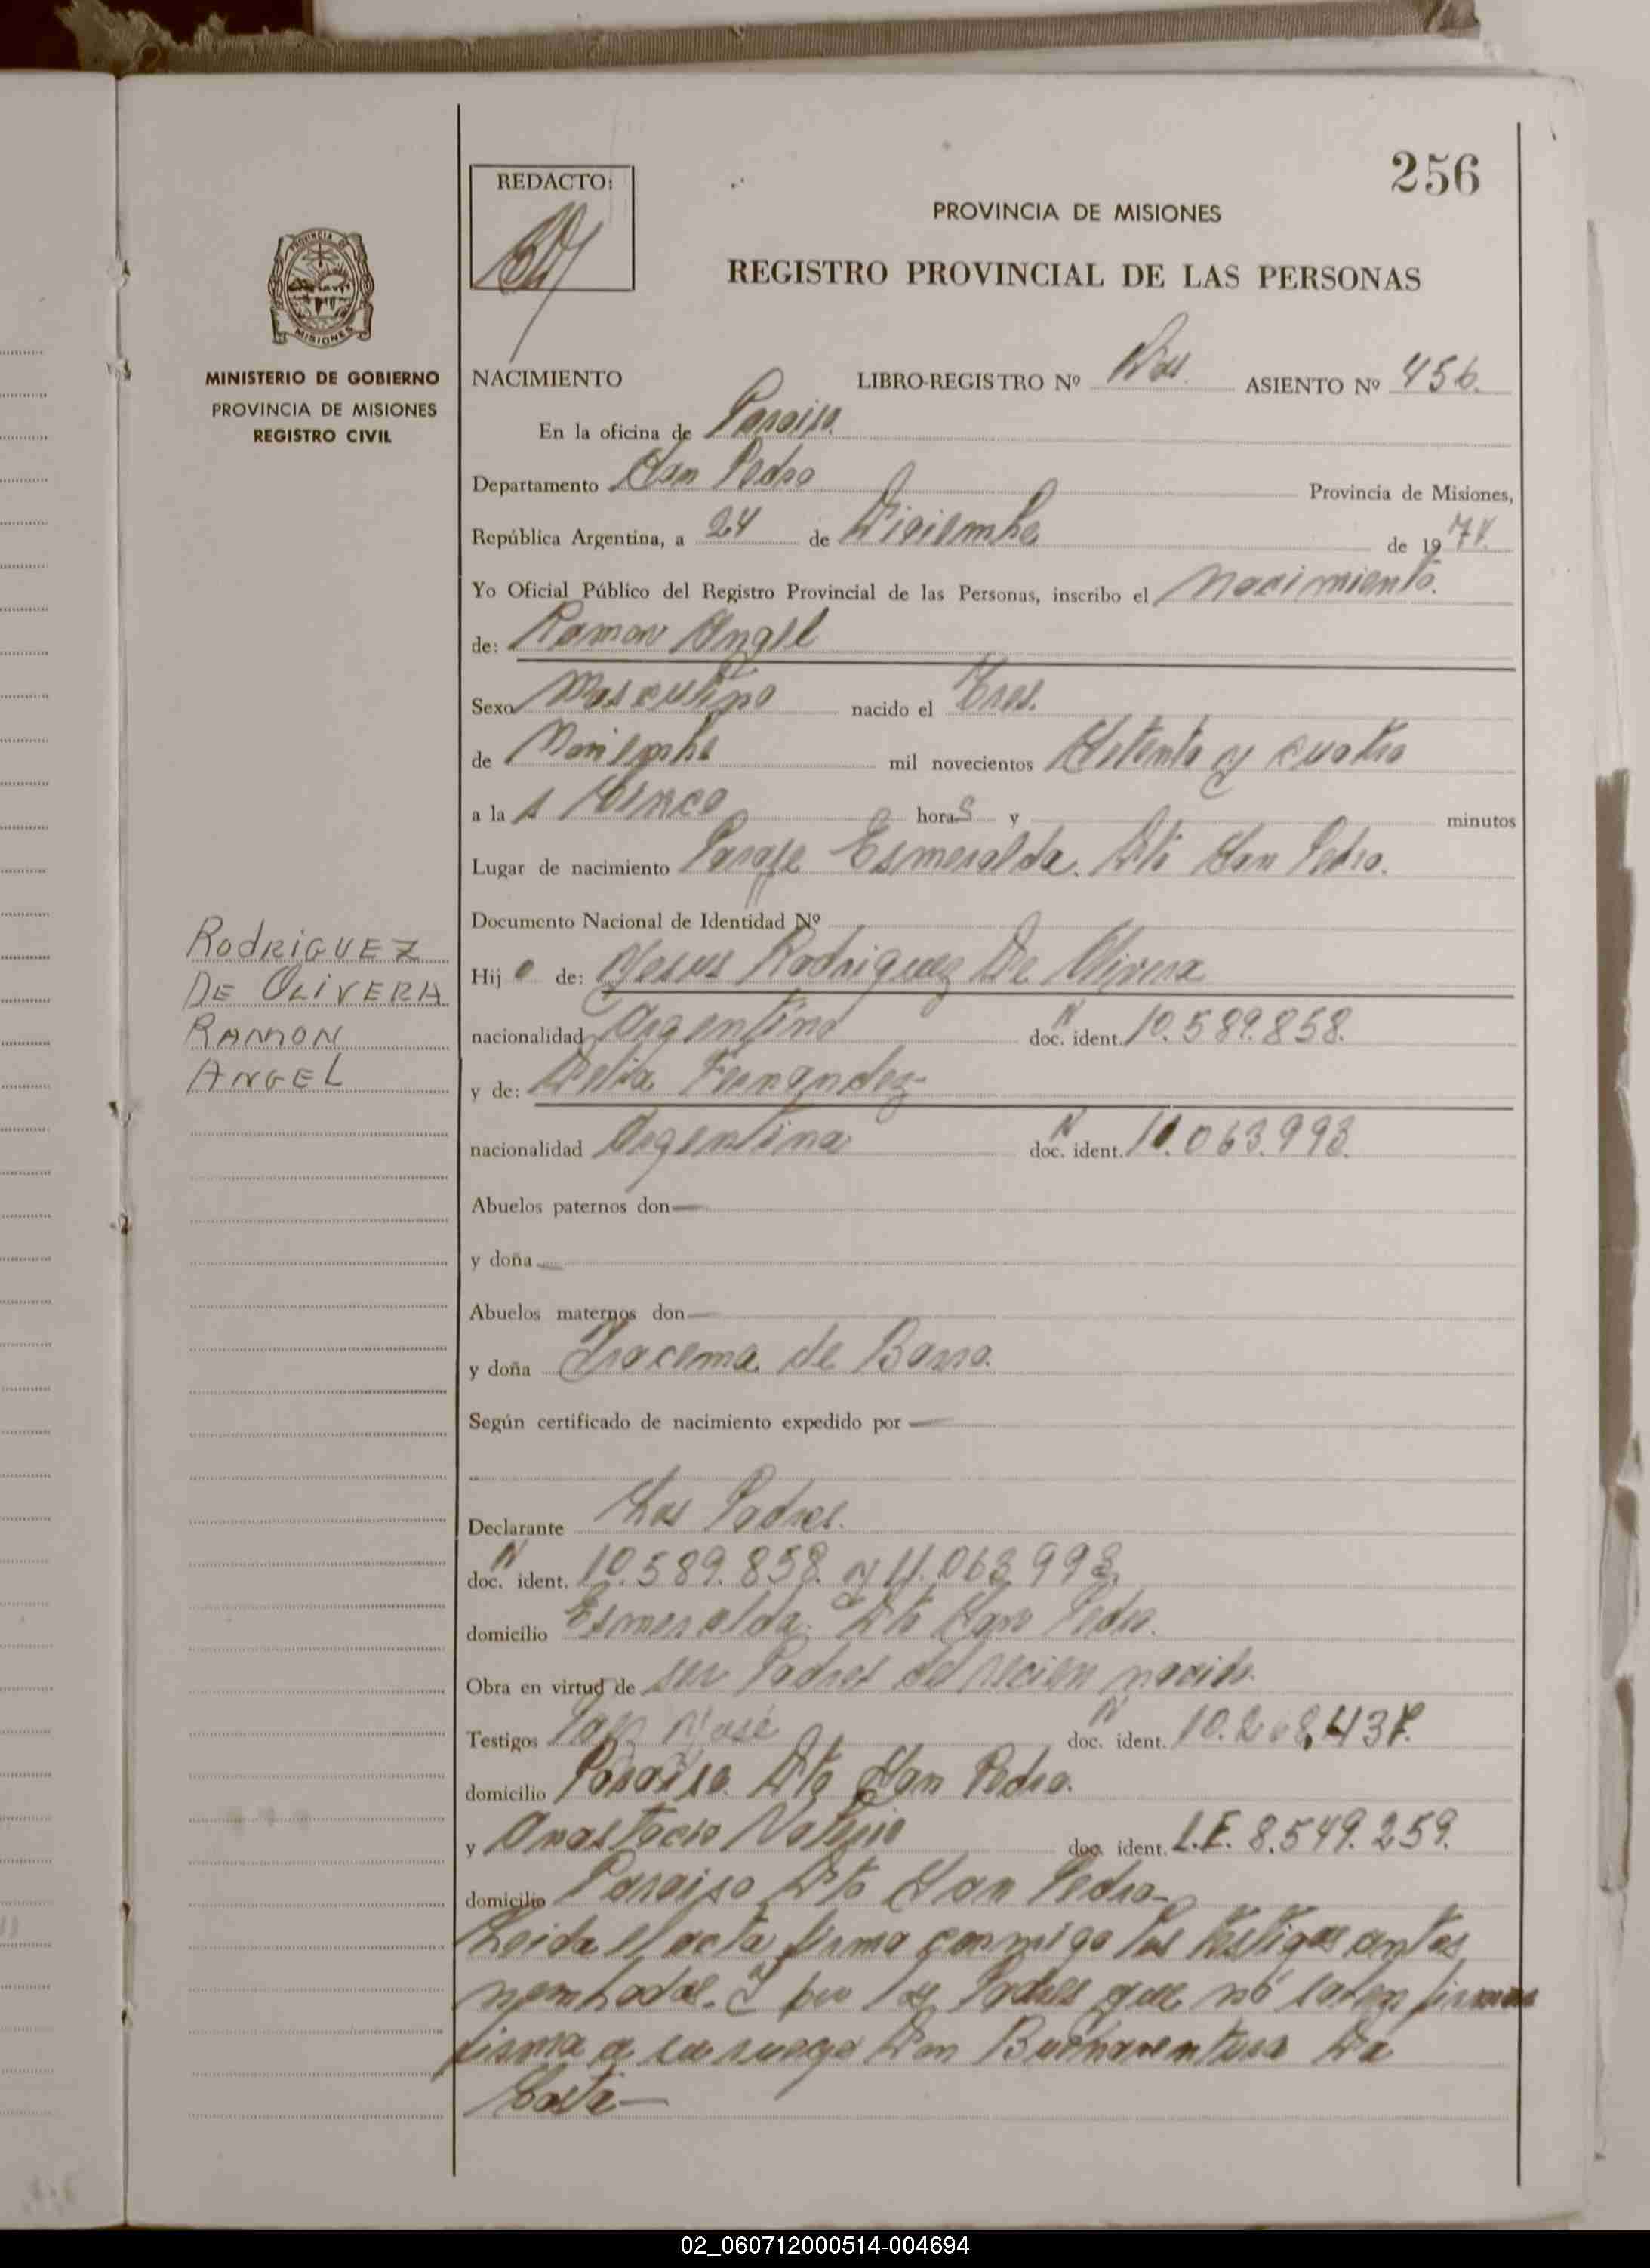 256
REDACTO:
PROVINCIA DE MISIONES
REGISTRO PROVINCIAL DE LAS PERSONAS
PROVINCIA DE
MISIONES
MINISTERIO DE GOBIERNO
PROVINCIA DE MISIONES
REGISTRO CIVIL
NACIMIENTO LIBRO-REGISTRO Nº Dos. ASIENTO Nº 456.
En la oficina de Paraiso.
Departamento San Pedro Provincia de Misiones,
República Argentina, a 24 de Diciembre de 1974.
Yo Oficial Público del Registro Provincial de las Personas, inscribo el Nacimiento.
de: Ramon Angel
Sexo Masculino nacido el Tres.
de mil novecientos Setenta y cuatro
a la s Cinco horas y minutos
Lugar de nacimiento Paraje Esmeralda. Dto San Pedro.
Documento Nacional de Identidad Nº
RODRIGUEZ
DE OLIVERA
RAMON
ANGEL
Hijo de: Jesus Rodriguez De Olivera
nacionalidad Argentino doc. ident. 10.589.858.
y de: Delia Fernandez
nacionalidad Argentina doc. ident. 063.993.
Abuelos paternos don—
y doña —
Abuelos maternos don—
y doña Iracema de
Según certificado de nacimiento expedido por —
Declarante Los Padres.
doc. ident. 10.589.858. y 11.063.993.
domicilio Esmeralda. Dto San Pedro.
Obra en virtud de ser Padres del recien nacido.
Testigos José doc. ident.
domicilio Paraiso. Dto San Pedro.
y Anastacio doc. ident. L.E. 8.549.259.
domicilio Paraiso Dto San Pedro—
Leida el acta firma conmigo los testigos antes
nombrados. Y por los Padres que no saben firmar
firma a su ruego Don Buenaventura Da
Costa—
02_060712000514-004694